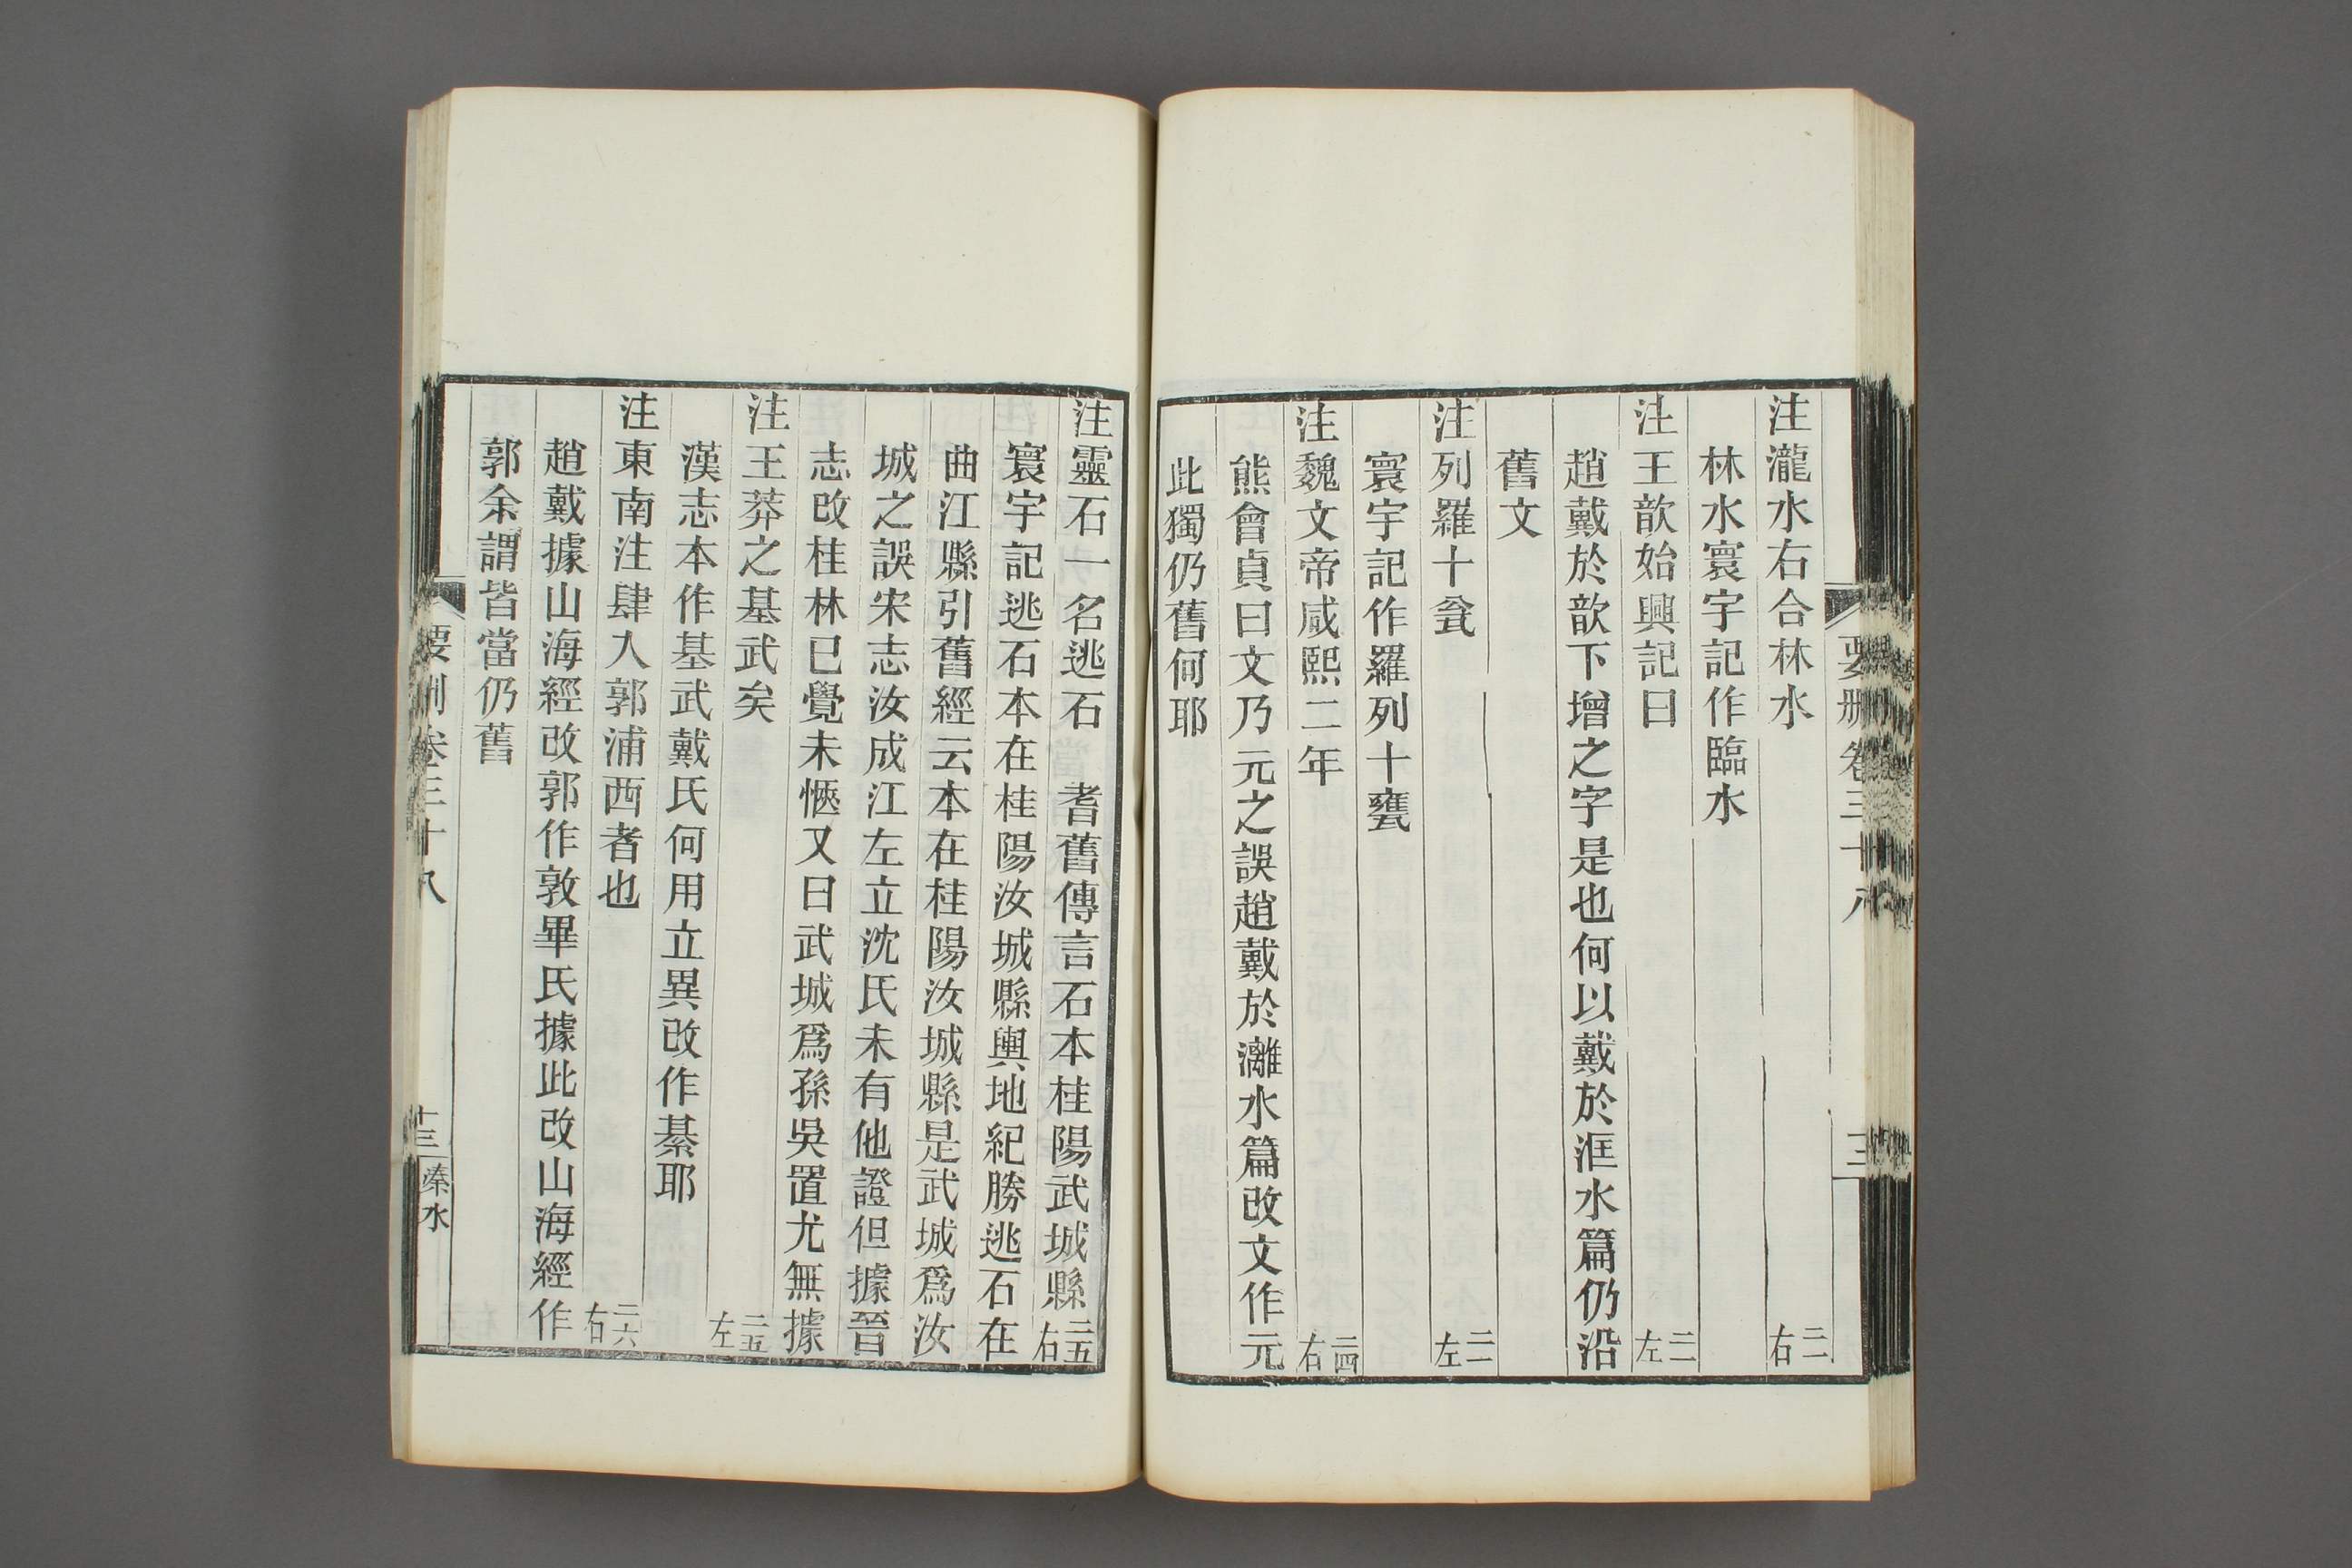 注瀧水右合林水 二二右
林水寰宇記作臨水
注王歆始興記曰 二二左
趙戴於歆下增之字是也何以戴於洭水篇仍沿
舊文
注列羅十瓮 二二左
寰宇記作羅列十甕
注魏文帝咸熙二年 二四右
熊會貞曰文乃元之誤趙戴於灕水篇改文作元
此獨仍舊何耶
注靈石一名逃石 耆舊傳言石本桂陽武城縣 二五右
寰宇記逃石本在桂陽汝城縣輿地紀勝逃石在
曲江縣引舊經云本在桂陽汝城縣是武城爲汝
城之誤宋志汝成江左立沈氏未有他證但據晉
志改桂林已覺未愜又曰武城爲孫吳置尤無據
注王莽之基武矣 二五左
漢志本作基武戴氏何用立異改作綦耶
注東南注肆入郭浦西者也 二六右
趙戴據山海經改郭作敦畢氏據此改山海經作
郭余謂皆當仍舊
要刪卷三十八
十三 溱水